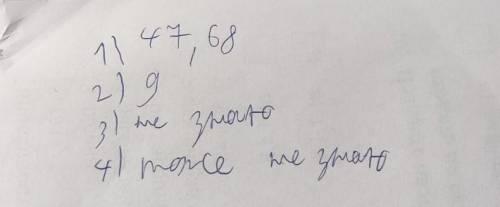 1) 47,68
2) 9
3) не знаю
4) тоже не знаю